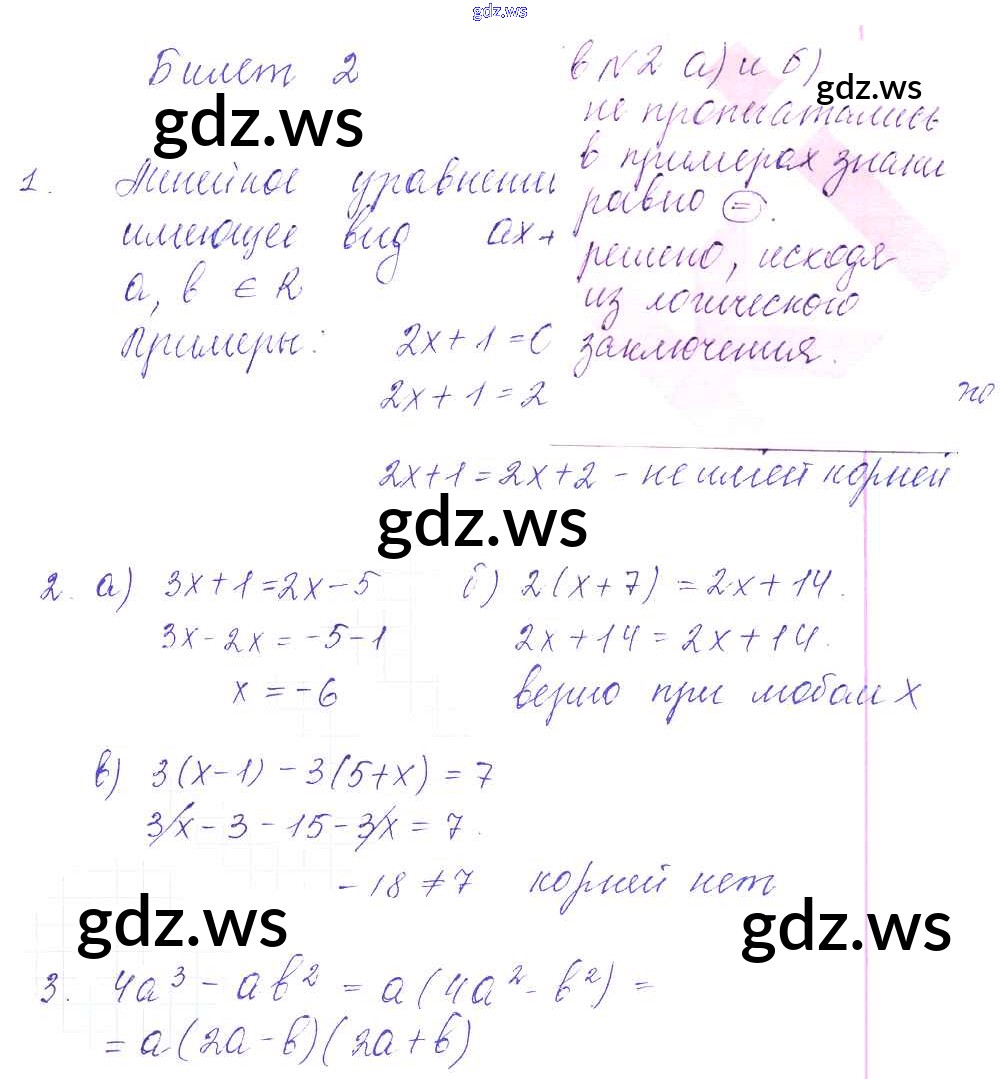 gdz.ws
Билет 2
gdz.ws
в №2 а) и б)
gdz.ws
не пропечатались
в примерах знаки
равно =.
решено, исходя
из логического
заключения.
1. Линейное уравнении
имеющее вид ax+
a, b ∈ R
Примеры: 2x+1=0
2x+1=2
2x+1=2x+2 - не имеет корней
gdz.ws
2. а) 3x+1=2x-5
3x-2x=-5-1
x=-6
б) 2(x+7)=2x+14.
2x+14=2x+14.
верно при любом x
в) 3(x-1)-3(5+x)=7
3x-3-15-3x=7.
-18≠7 корней нет
gdz.ws
gdz.ws
3. 4a³-ab²=a(4a²-b²)=
=a(2a-b)(2a+b)